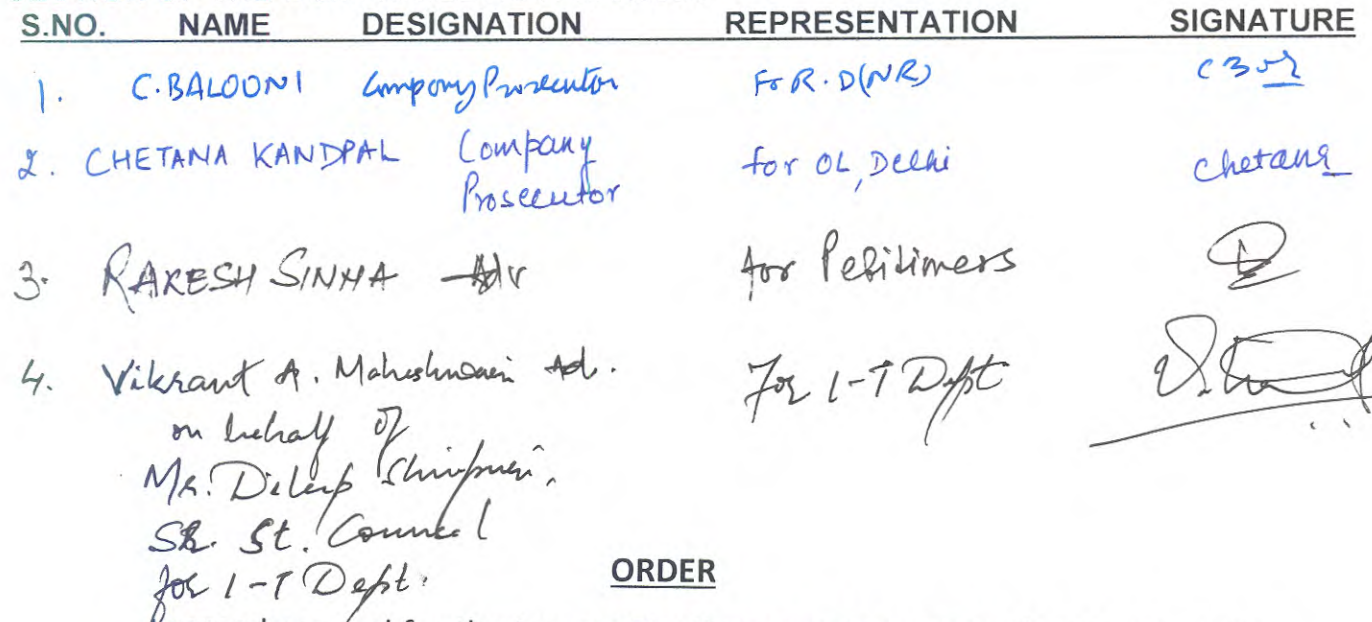 S.NO. NAME DESIGNATION REPRESENTATION SIGNATURE
1. C. BALOONI Company Prosecutor For R.D(NR)
2. CHETANA KANDPAL Company Prosecutor for OL, Delhi Chetana
3. RAKESH SINHA Adv for Petitioners
4. Vikrant A. Maheshwari Ad. For I-T Dept
on behalf of
Mr. Dileep Shivpuri,
SR. St. Counsel
for I-T Dept.
ORDER